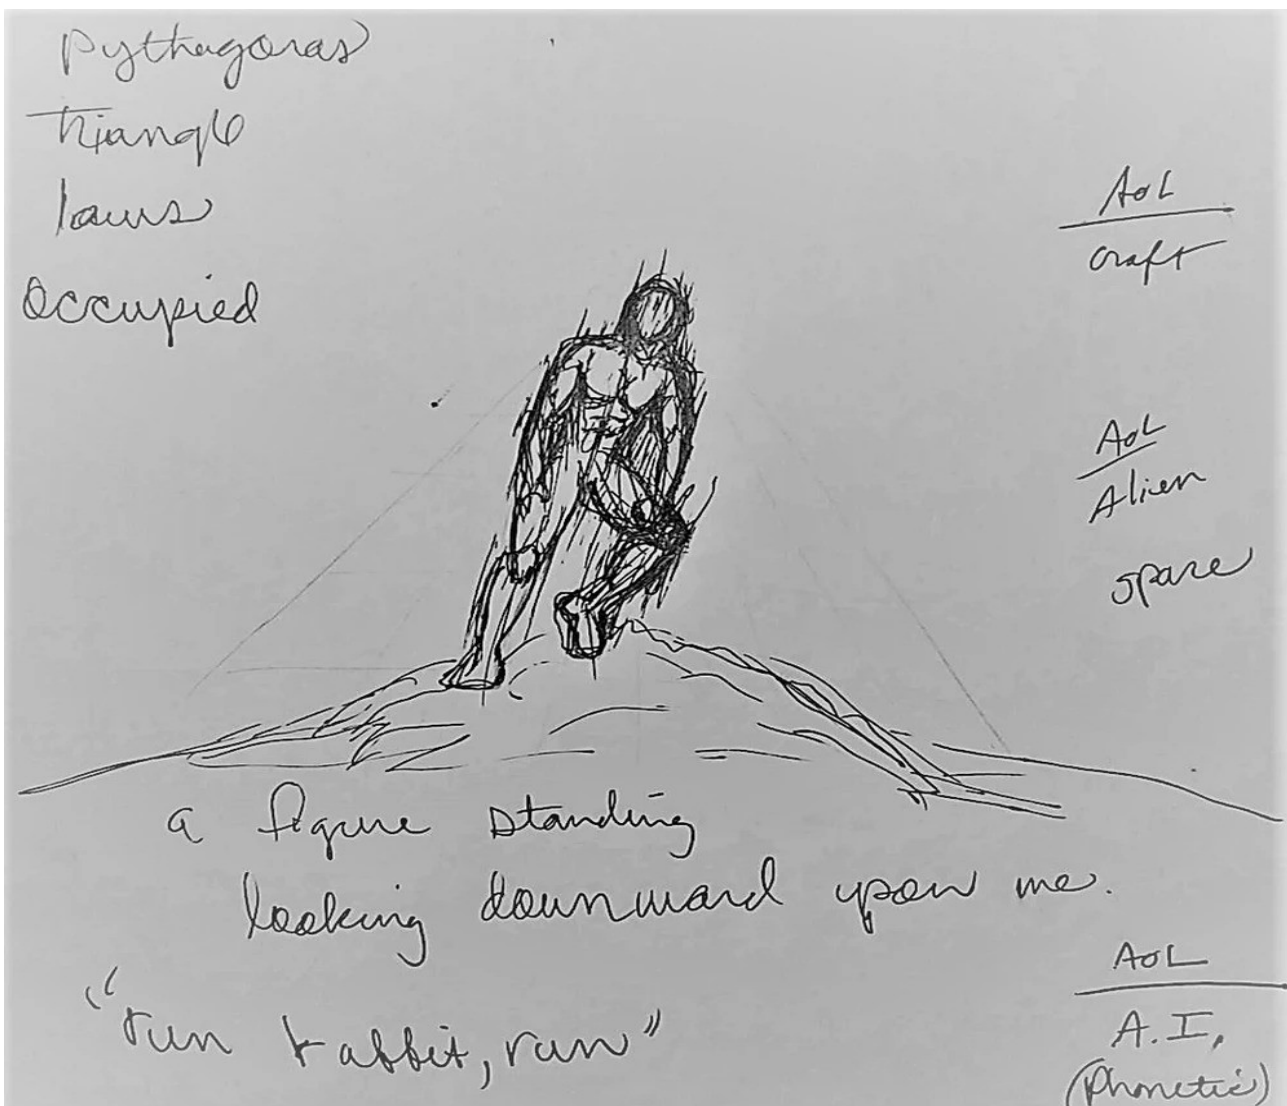 Pythagoras
Triangle
laws
Occupied
AOL
craft
AOL
Alien
space
a figure standing
looking downward upon me.
"run rabbit, run"
AOL
A.I.
(Phonetic)